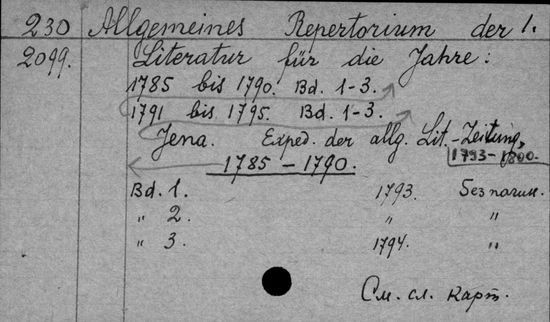 230 Allgemeines Repertorium der 1.
2099. Literatur für die Jahre:
1785 bis 1790. Bd. 1-3.
1791 bis 1795. Bd. 1-3.
Jena. Exped. der allg. Lit.-Zeitung,
1793-1800.
1785-1790.
Bd. 1. 1793. Без пагин.
" 2. " "
" 3. 1794. "
См. сл. карт.